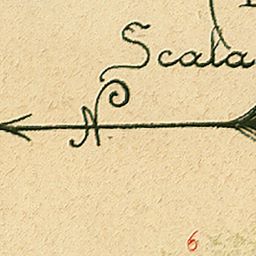 Scala
N
6